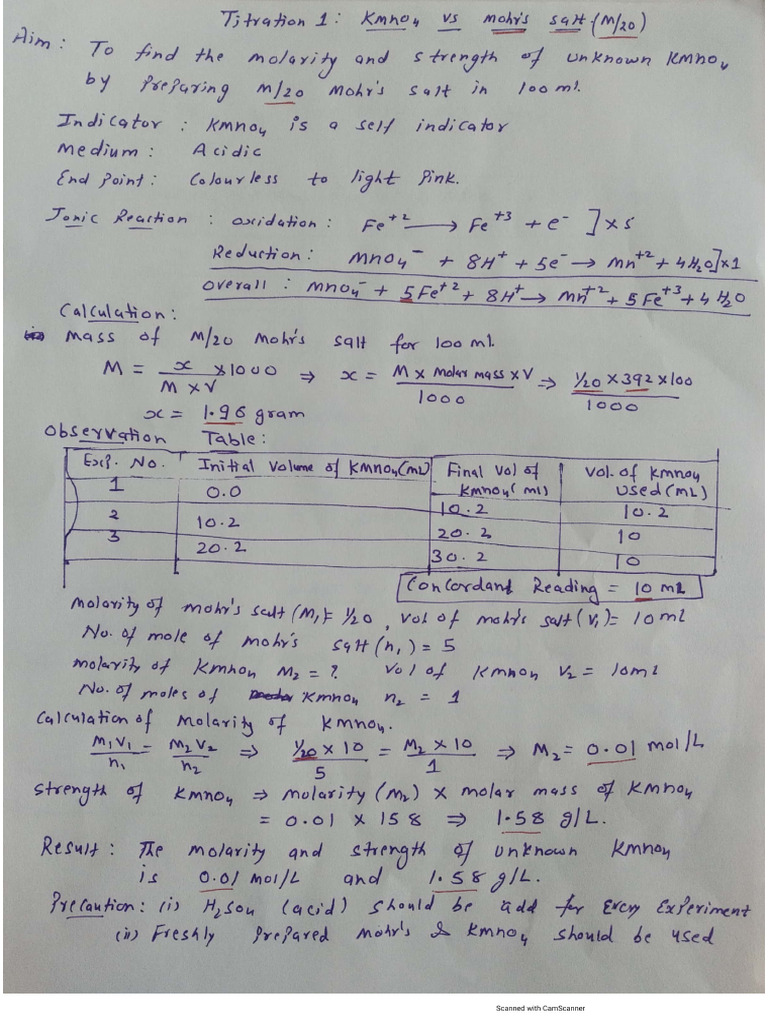 Titration 1: KMnO4 vs Mohr's salt (M/20)
Aim: To find the molarity and strength of unknown KMnO4
by preparing M/20 Mohr's salt in 100 ml.
Indicator : KMnO4 is a self indicator
Medium : Acidic
End Point: Colourless to light Pink.
Ionic Reaction : oxidation : Fe+2 → Fe+3 + e- ] x 5
Reduction : MnO4- + 8H+ + 5e- → Mn+2 + 4H2O ] x 1
Overall : MnO4- + 5Fe+2 + 8H+ → Mn+2 + 5Fe+3 + 4H2O
Calculation :
Mass of M/20 Mohr's salt for 100 ml.
M = x / M x V x 1000 ⇒ x = M x Molar mass x V / 1000 ⇒ 1/20 x 392 x 100 / 1000
x = 1.96 gram
Observation Table :
Exp. No. Initial Volume of KMnO4 (mL) Final Vol of KMnO4 (ml) Vol. of KMnO4 used (mL)
1 0.0 10.2 10.2
2 10.2 20.2 10
3 20.2 30.2 10
Concordant Reading = 10 mL
Molarity of Mohr's salt (M1) = 1/20, Vol of Mohr's salt (V1) = 10 ml
No. of mole of Mohr's salt (n1) = 5
Molarity of KMnO4 M2 = ? Vol of KMnO4 V2 = 10ml
No. of moles of KMnO4 n2 = 1
Calculation of Molarity of KMnO4.
M1V1 / n1 = M2V2 / n2 ⇒ 1/20 x 10 / 5 = M2 x 10 / 1 ⇒ M2 = 0.01 mol/L
Strength of KMnO4 ⇒ Molarity (M2) x molar mass of KMnO4
= 0.01 x 158 ⇒ 1.58 g/L.
Result : The molarity and strength of unknown KMnO4
is 0.01 mol/L and 1.58 g/L.
Precaution : (i) H2SO4 (acid) should be add for Every Experiment
(ii) Freshly Prepared Mohr's & KMnO4 should be used
Scanned with CamScanner